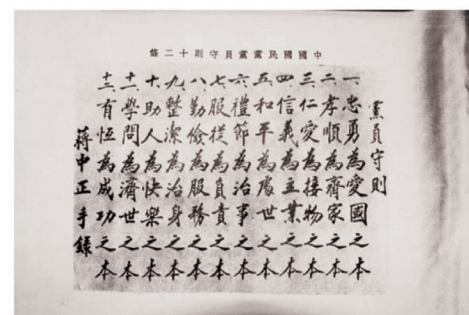 中國國民黨黨員守則十二條
黨員守則
一、忠勇為愛國之本
二、孝順為齊家之本
三、仁愛為接物之本
四、信義為立業之本
五、和平為處世之本
六、禮節為治事之本
七、服從為負責之本
八、勤儉為服務之本
九、整潔為治身之本
十、助人為快樂之本
十一、學問為濟世之本
十二、有恒為成功之本
蔣中正手錄